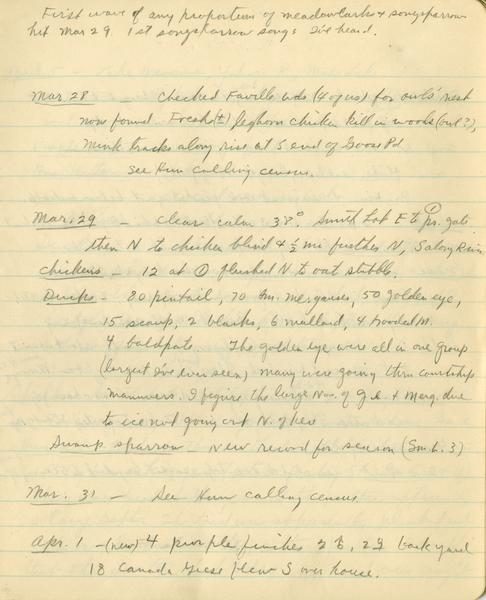 First wave of any proportions of meadowlarks & songsparrow
hit Mar 29. 1st songsparrow songs I've heard.
Mar. 28 - Checked Faville wds (4 of us) for owls' nest
none found. Fresh (±) leghorn chicken kill in woods (owl?),
Mink tracks along rise at S end of Goose Pd
See Hum calling census.
Mar. 29 - Clear calm 38° Smith Lab E to ① gate
then N to chicken blind & ½ mi further N,
Chickens - 12 at ① flushed N to oat stubble.
Ducks - 20 pintail, 70 Am. merganser, 50 golden eye,
15 scaup, 2 blacks, 6 mallard, 4 hooded M.
4 baldpate. The golden eye were all in one group
(largest I've ever seen) many were going thru courtship
manuvers. I figure the large Nos. of g.e. & Merg. due
to ice not going out N. of here
Swamp sparrow - New record for season (Sm. L. 3)
Mar. 31 - See Hum calling census
Apr. 1 - (new) 4 purple finches 2 ♂, 2 ♀ back yard
18 Canada Geese flew S over house.